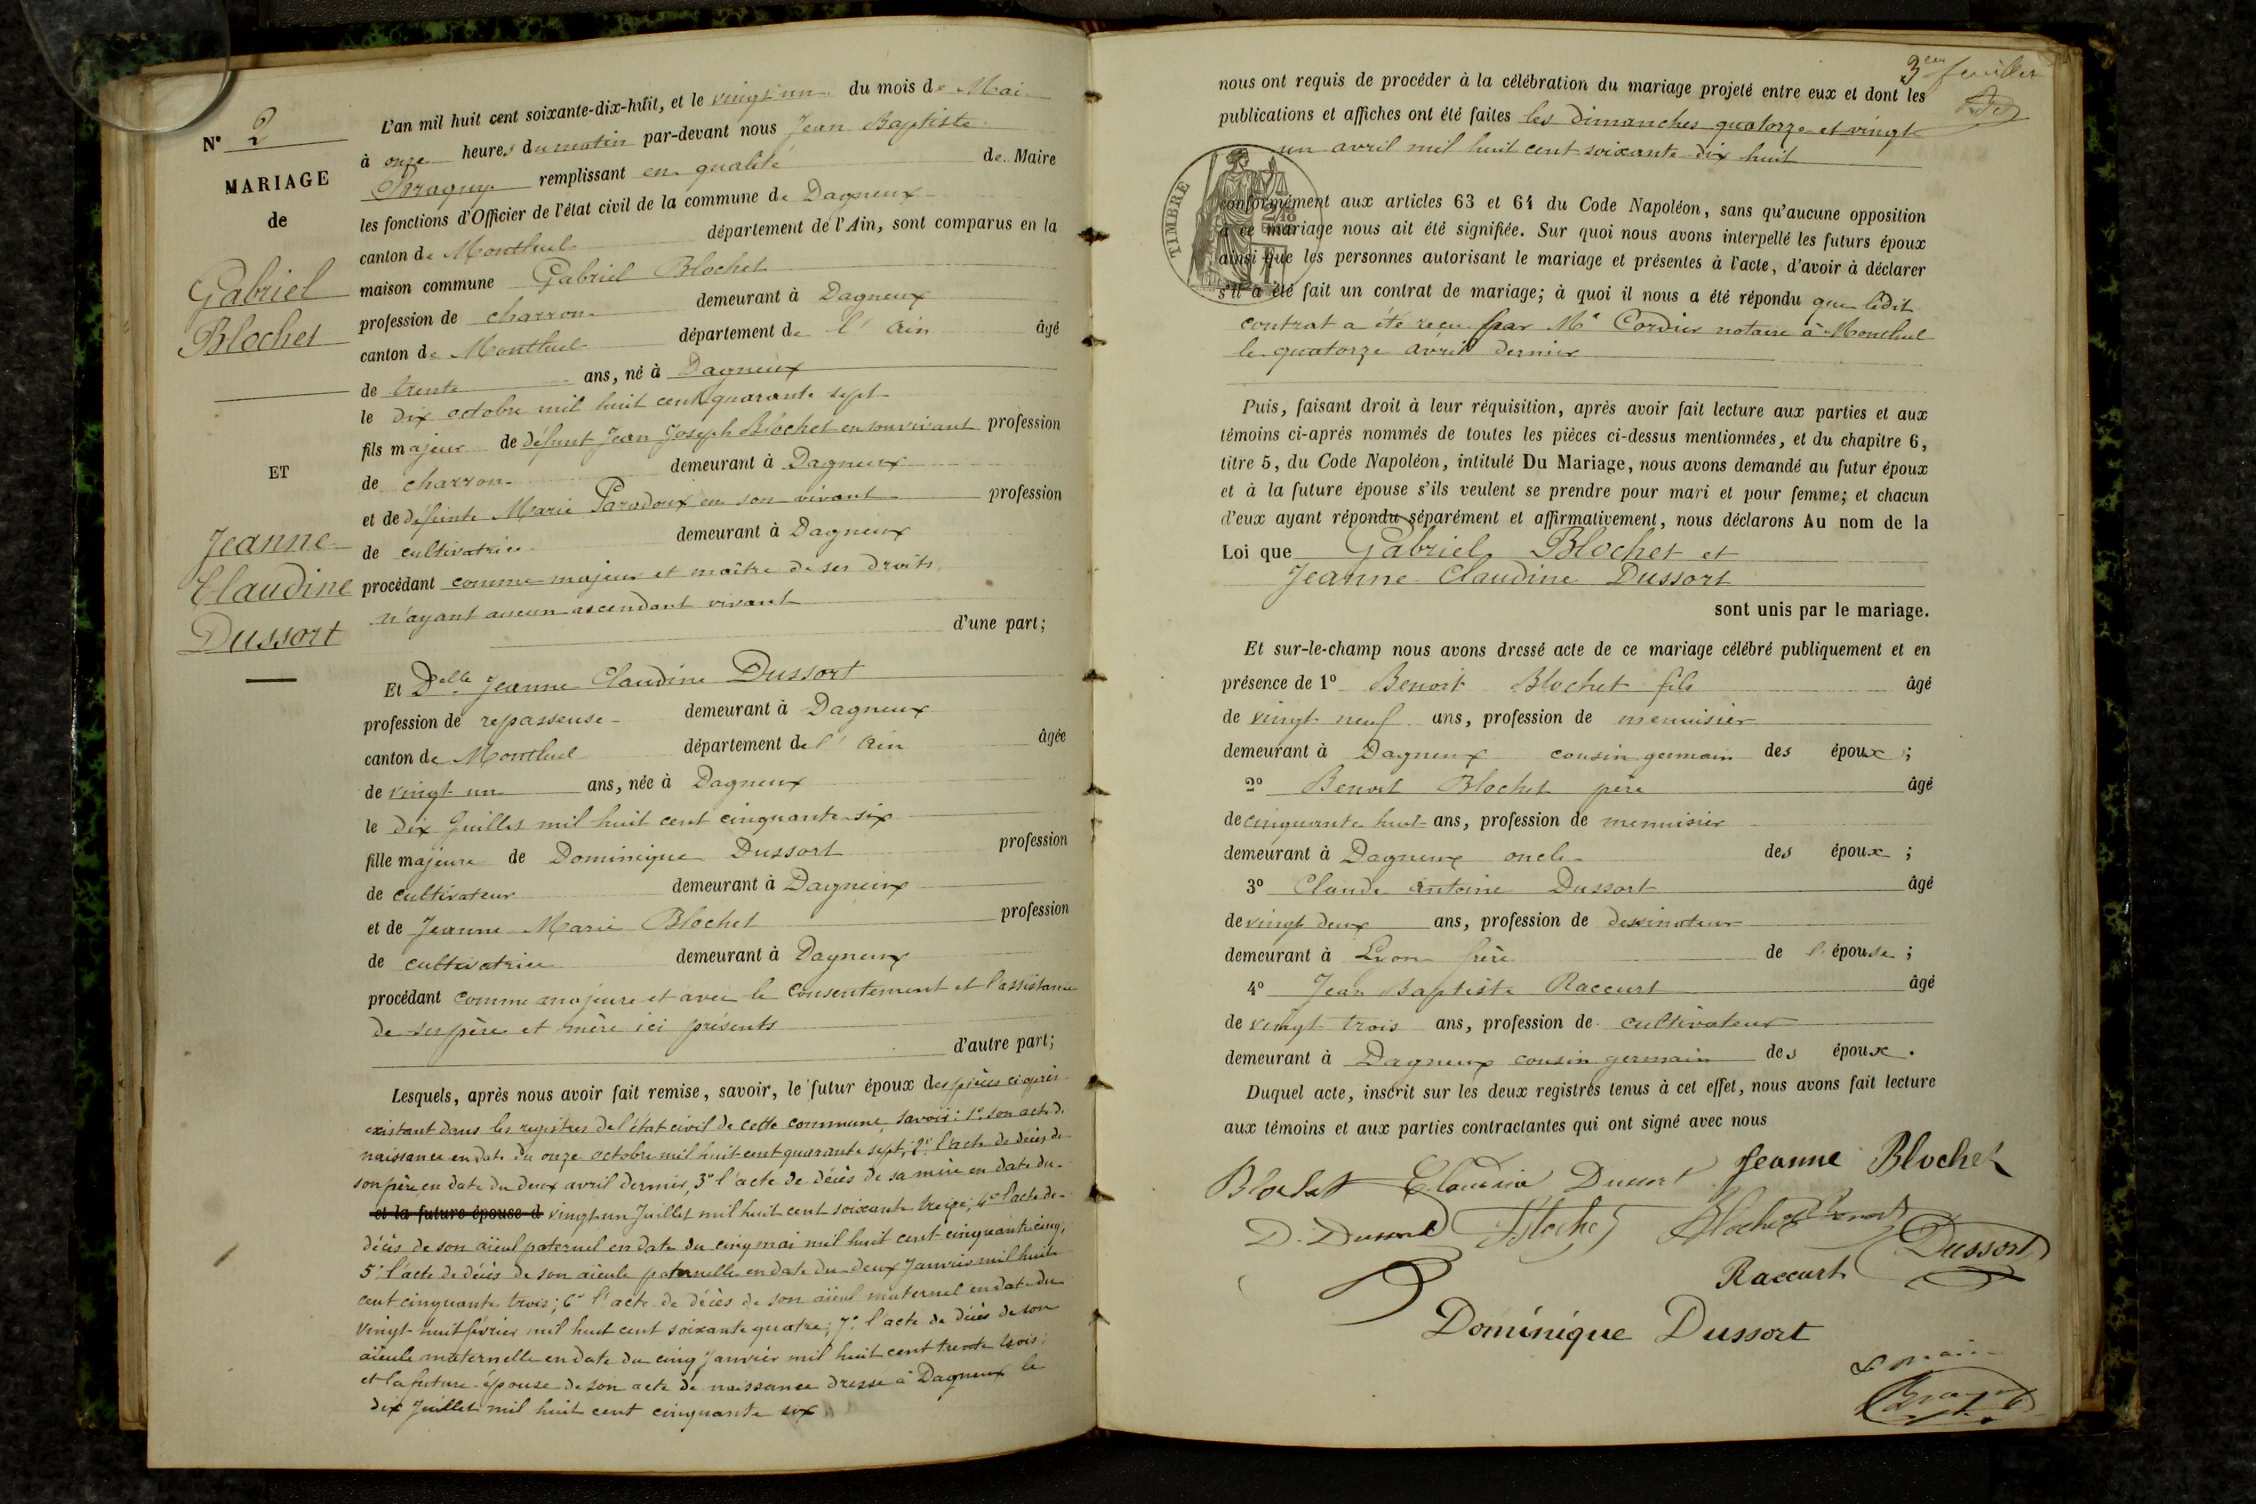 N° 2
MARIAGE
de
Gabriel
Blochet
ET
Jeanne
Claudine
Dussort
L'an mil huit cent soixante-dix-huit, et le vingt un du mois de Mai
à onze heures du matin par-devant nous Jean Baptiste
remplissant en qualité de Maire
les fonctions d'Officier de l'état civil de la commune de Dagneux
canton de Montluel département de l'Ain, sont comparus en la
maison commune Gabriel Blochet
profession de charron demeurant à Dagneux
canton de Montluel département de l'Ain âgé
de trente ans, né à Dagneux
le dix octobre mil huit cent quarante sept
fils majeur de défunt Jean Joseph Blochet en son vivant profession
de charron demeurant à Dagneux
et de défunte Marie Paradoux en son vivant profession
de cultivatrice demeurant à Dagneux
procédant comme majeur et maître de ses droits
n'ayant aucun ascendant vivant
d'une part;
Et Delle Jeanne Claudine Dussort
profession de repasseuse demeurant à Dagneux
canton de Montluel département de l'Ain âgée
de vingt un ans, née à Dagneux
le dix Juillet mil huit cent cinquante six
fille majeure de Dominique Dussort profession
de cultivateur demeurant à Dagneux
et de Jeanne Marie Blochet profession
de cultivatrice demeurant à Dagneux
procédant comme majeure et avec le consentement et l'assistance
de ses père et mère ici présents
d'autre part;
Lesquels, après nous avoir fait remise, savoir, le futur époux des pièces ci après
existant dans les registres de l'état civil de cette commune, savoir: 1° son acte de
naissance en date du onze octobre mil huit cent quarante sept; 2° l'acte de décès de
son père en date du deux avril dernier, 3° l'acte de décès de sa mère en date du
et la future épouse d vingt un Juillet mil huit cent soixante treize; 4° l'acte de
décès de son aïeul paternel en date du cinq mai mil huit cent cinquante cinq;
5° l'acte de décès de son aïeule paternelle en date du deux Janvier mil huit
cent cinquante trois; 6° l'acte de décès de son aïeul maternel en date du
vingt-huit février mil huit cent soixante quatre; 7° l'acte de décès de son
aïeule maternelle en date du cinq Janvier mil huit cent trente trois;
et la future épouse de son acte de naissance dressé à Dagneux le
dix Juillet mil huit cent cinquante six
3em feuillet
nous ont requis de procéder à la célébration du mariage projeté entre eux et dont les
publications et affiches ont été faites les dimanches quatorze et vingt
un avril mil huit cent soixante dix huit
TIMBRE
conformément aux articles 63 et 64 du Code Napoléon, sans qu'aucune opposition
à ce mariage nous ait été signifiée. Sur quoi nous avons interpellé les futurs époux
ainsi que les personnes autorisant le mariage et présentes à l'acte, d'avoir à déclarer
s'il a été fait un contrat de mariage; à quoi il nous a été répondu que ledit
contrat a été reçu par Me Cordier notaire à Montluel
le quatorze avril dernier
Puis, faisant droit à leur réquisition, après avoir fait lecture aux parties et aux
témoins ci-après nommés de toutes les pièces ci-dessus mentionnées, et du chapitre 6,
titre 5, du Code Napoléon, intitulé Du Mariage, nous avons demandé au futur époux
et à la future épouse s'ils veulent se prendre pour mari et pour femme; et chacun
d'eux ayant répondu séparément et affirmativement, nous déclarons Au nom de la
Loi que Gabriel Blochet et
Jeanne Claudine Dussort
sont unis par le mariage.
Et sur-le-champ nous avons dressé acte de ce mariage célébré publiquement et en
présence de 1° Benoit Blochet fils âgé
de vingt neuf ans, profession de menuisier
demeurant à Dagneux cousin germain des époux;
2° Benoit Blochet père âgé
de cinquante huit ans, profession de menuisier
demeurant à Dagneux oncle des époux;
3° Claude Antoine Dussort âgé
de vingt deux ans, profession de dessinateur
demeurant à Lyon frère de l'épouse;
4° Jean Baptiste Raccurt âgé
de vingt trois ans, profession de cultivateur
demeurant à Dagneux cousin germain des époux.
Duquel acte, inscrit sur les deux registres tenus à cet effet, nous avons fait lecture
aux témoins et aux parties contractantes qui ont signé avec nous
Blochet Claudine Dussort Jeanne Blochet
D. Dussort Blochet Blochet Benoit
Raccurt Dussort
Dominique Dussort
Le Maire